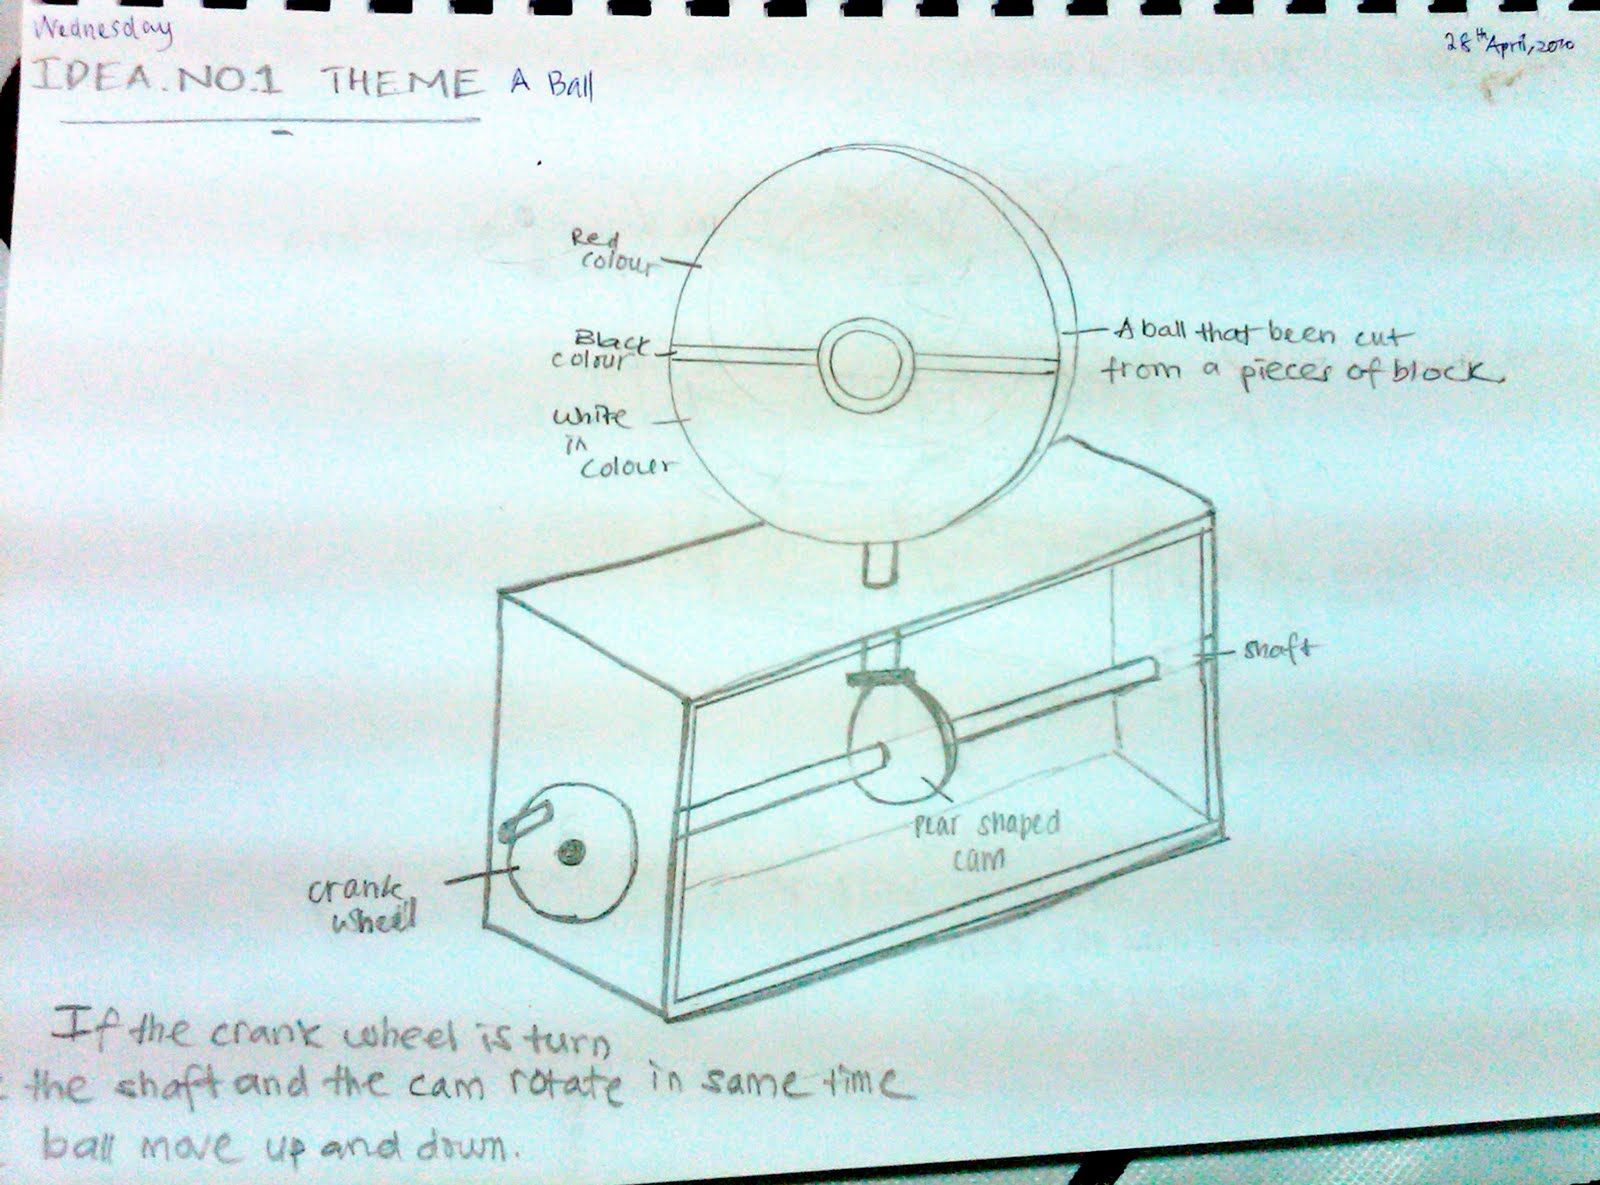 Wednesday
28th April, 2010
IDEA.NO.1 THEME A Ball
Red
colour
Black
colour
White
in
colour
A ball that been cut
from a pieces of block.
shaft
Pear shaped
cam
crank
wheel
If the crank wheel is turn
the shaft and the cam rotate in same time
ball move up and down.